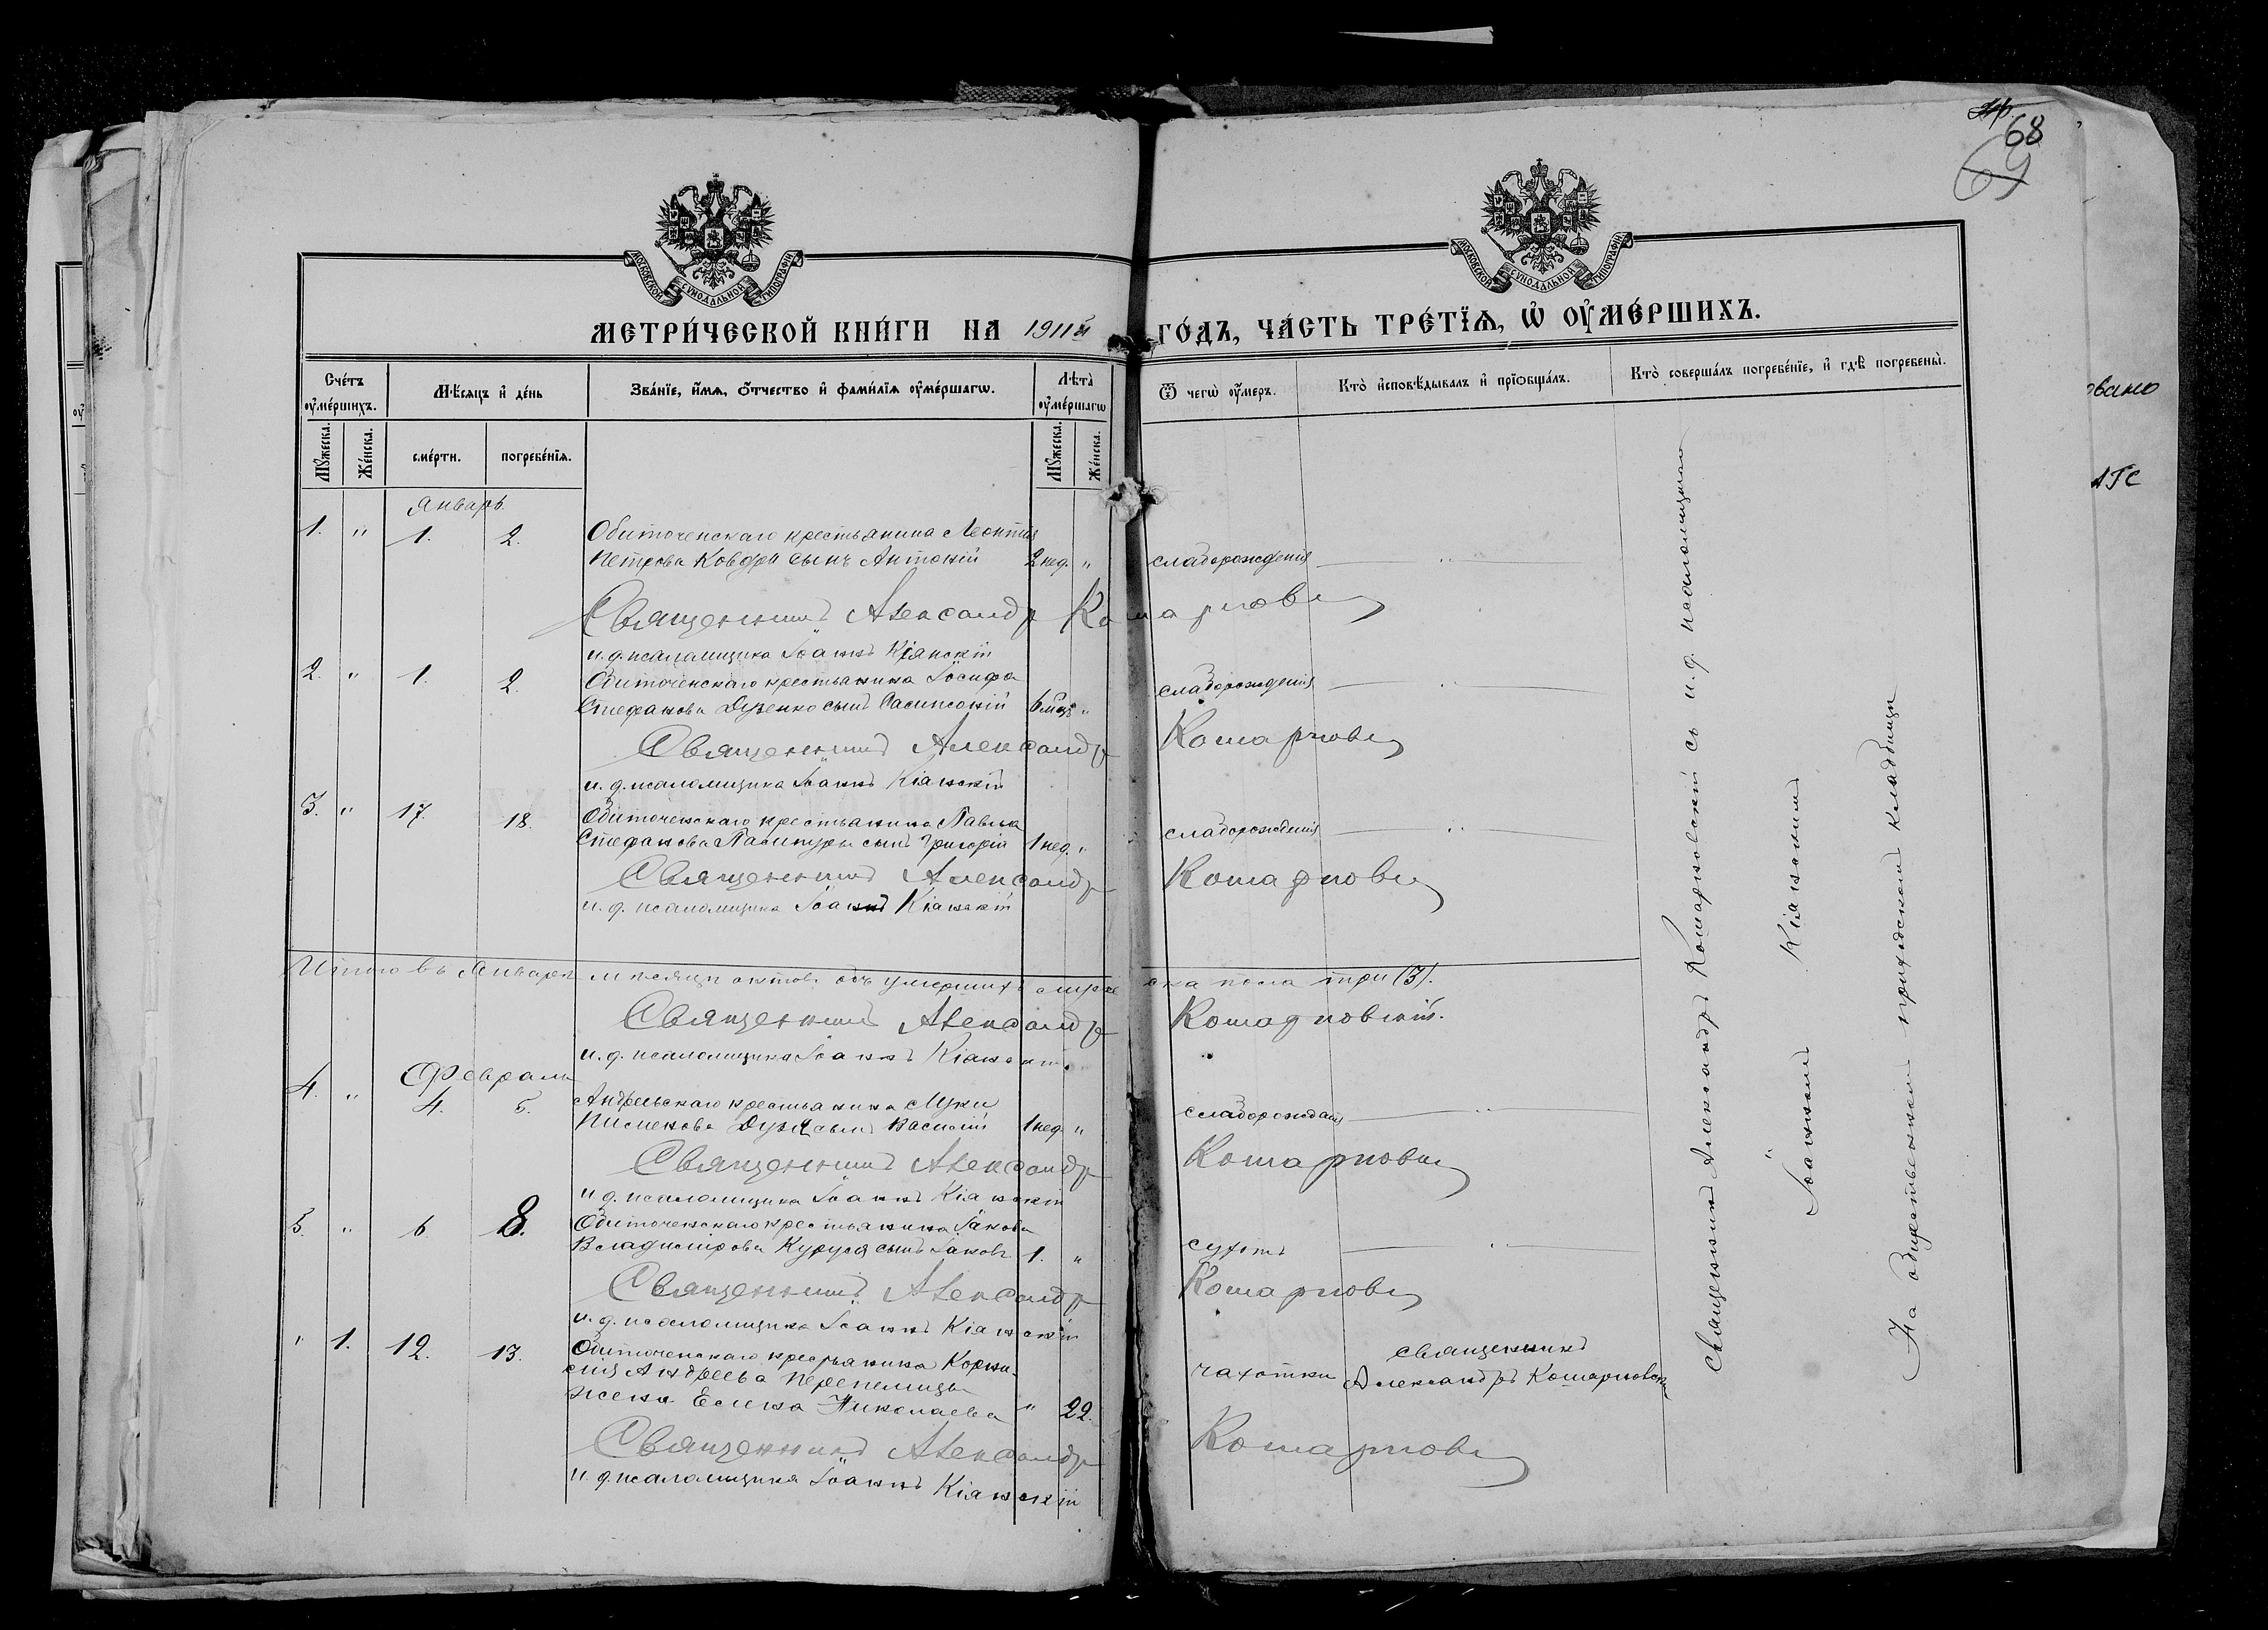 68
69
МОСКОВСКОЙ СѴНОДАЛЬНОЙ ТИПОГРАФІИ
МОСКОВСКОЙ СѴНОДАЛЬНОЙ ТИПОГРАФІИ
МЕТРИ́ЧЕСКОЙ КНИ́ГИ НА 1911й ГО́ДЪ, ЧА́СТЬ ТРЕ́ТЇѦ, Ѡ҆ ОУ҆МЕ́РШИХЪ.
Сче́тъ оу҆ме́ршихъ.
Мѣ́сяцъ и҆ де́нь
Зва́нїе, и҆́мѧ, ѻ҆́тчество и҆ фами́лїѧ оу҆ме́ршагѡ.
Лѣ́та̀ оу҆ме́ршагѡ
Ѿ чегѡ̀ оу҆́меръ.
Кто̀ и҆сповѣ́дывалъ и҆ прїѡбща́лъ.
Кто̀ соверша́лъ погребе́нїе, и҆ гдѣ̀ погребены̀.
Мꙋ́жеска.
Же́нска.
сме́рти.
погребе́нїѧ.
Мꙋ́жеска.
Же́нска.
Январь
1. " 1. 2. Обиточенскаго крестьянина Леонтія
Петрова Ковдри сынъ Антоній 2 нед. " слаборожденія "
Священникъ Александр Кошарновс
и. д. псаломщика Іоаннъ Кіянскій
2. " 1. 2. Обиточенскаго крестьянина Іосифа
Стефанова Дузенко сынъ 6 мѣс. " слаборожденія "
Священникъ Александр Кошарновс
и. д. псаломщика Іоаннъ Кіянскій
3. " 17. 18. Обиточенскаго крестьянина Павла
Стефанова сынъ Григорій 1 нед. " слаборожденія "
Священникъ Александр Кошарновс
и. д. псаломщика Іоаннъ Кіянскій
Итого въ Январѣ мѣсяцѣ актовъ объ умершихъ мужеска пола три (3).
Священникъ Александр Кошарновскій.
и. д. псаломщика Іоаннъ Кіянскій
Февраль
4. " 4. 5. Андреевскаго крестьянина Луки
Пименова сынъ Василій 1 нед. " слаборожденія "
Священникъ Александр Кошарновс
и. д. псаломщика Іоаннъ Кіянскій
5. " 6 8. Обиточенскаго крестьянина Іакова
Владимірова Куруся сынъ Іаковъ 1. " сухотъ "
Священникъ Александр Кошарновс
и. д. псаломщика Іоаннъ Кіянскій
" 1. 12. 13. Обиточенскаго крестьянина Корни-
лія Андреева Перепелицы
жена Елена Николаева " 22. чахотки Священникъ
Александръ Кошарновскій
Священникъ Александр Кошарновс
и. д. псаломщика Іоаннъ Кіянскій
Священникъ Александръ Кошарновскій съ и. д. псаломщика
Іоанномъ Кіянскимъ
На общественномъ приходскомъ кладбищѣ